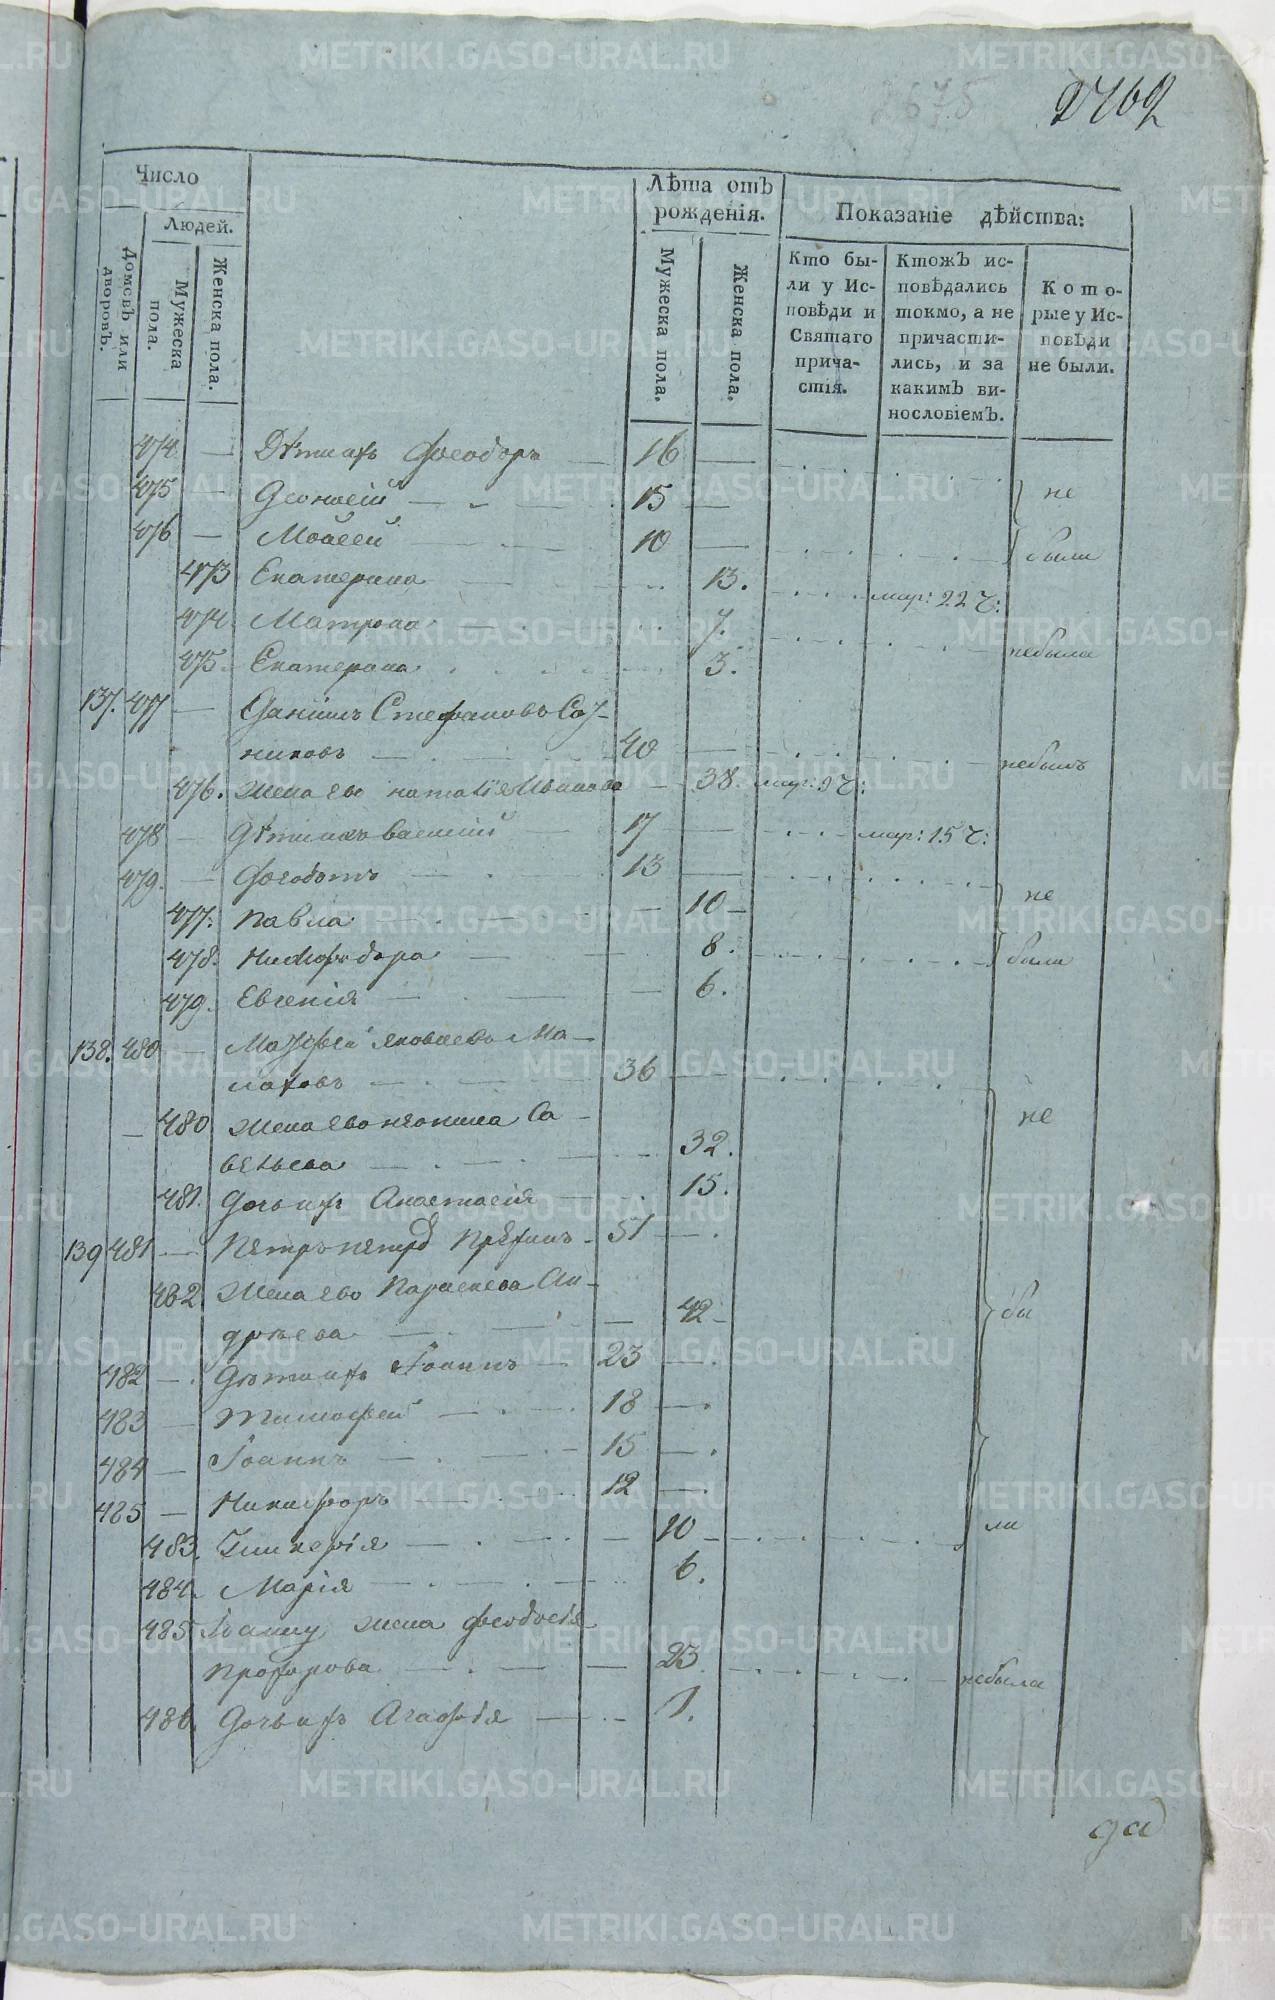 2675
2762
Число
Людей.
Домовъ или дворовъ.
Мужеска пола.
Женска пола.
Лѣта отъ рожденія.
Мужеска пола.
Женска пола.
Показаніе дѣйства:
Кто бы-
ли у Ис-
повѣди и
Святаго
прича-
стія.
Ктожъ ис-
повѣдались
токмо, а не
причасти-
лись, и за
какимъ ви-
нословіемъ.
Кото-
рые у Ис-
повѣди
не были.
474 — Дѣти ихъ Феодоръ — 16 —
475 — Леонтій — 15 — не
476 — Моѵсей — 10 — были
473 Екатерина — 13. мар: 22 ч:
474. Матрона — 7.
475. Екатерина — 5. небыла
137. 477 — Даніилъ Стефановъ
никовъ — 40 — небылъ
476. Жена его Наталія Иванова — 38. мар: 9 ч:
478 — Дѣти ихъ Василій — 17 — мар: 15 ч:
479. — Феодотъ — 13 —
477. Павла — 10 — не
478. Никифодора — 8. были
479. Евгенія — 6.
138. 480 — Маѳѳей Яковлевъ Ма-
лаховъ — 36
480 Жена его Неонила Са- не
вельева — 32.
481. Дочь ихъ Анастасія — 15.
139 481 — Петръ Петровъ — 51 —
482 Жена его Параскева Ан- бы
дреева — 42 —
482 — Дѣти ихъ Іоаннъ — 23 —
483 — Тимофей — 18 —
484 — Іоаннъ — 15 —
485 — Никифоръ — 12 —
483. Гликерія — 10 — ли
484. Марія — 6.
485 Іоанну жена Феодосія
Прохорова — 23. небыла
486. Дочь ихъ Агафія — 1.
да
METRIKI.GASO-URAL.RU